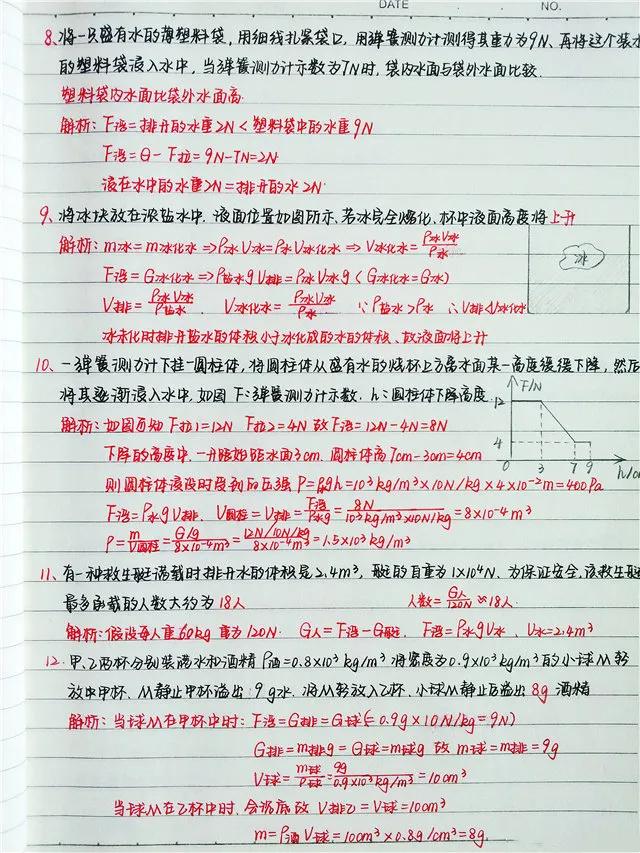 DATE NO.
8、将一只盛有水的薄塑料袋，用细线扎紧袋口，用弹簧测力计测得其重力为9N、再将这个装水
的塑料袋浸入水中，当弹簧测力计示数为7N时，袋内水面与袋外水面比较.
塑料袋内水面比袋外水面高.
解析：F浮=排开的水重2N<塑料袋中的水重9N
F浮=G-F拉=9N-7N=2N
浸在水中的水重2N=排开的水2N
9、将冰块放在浓盐水中. 液面位置如图所示、若冰完全熔化、杯中液面高度将上升
解析：m冰=m冰化水⇒ρ冰V冰=ρ水V冰化水⇒V冰化水=ρ冰V冰/ρ水
冰
F浮=G冰化水⇒ρ盐水gV排=ρ冰V冰g（G冰化水=G冰）
V排=ρ冰V冰/ρ盐水. V冰化水=ρ冰V冰/ρ水 ∵ρ盐水>ρ水 ∴V排<V冰化水
冰未化时排开盐水的体积小于冰化成的水的体积、故液面将上升
10、一弹簧测力计下挂一圆柱体，将圆柱体从盛有水的烧杯上方离水面某一高度缓缓下降，然后
将其逐渐浸入水中，如图 F：弹簧测力计示数. h：圆柱体下降高度.
F/N
12
4
0 3 7 9 h/cm
解析：如图可知 F拉1=12N F拉2=4N 故F浮=12N-4N=8N
下降的高度中，一开始距水面3cm. 圆柱体高7cm-3cm=4cm
则圆柱体浸没时受到的压强 P=ρgh=10³kg/m³×10N/kg×4×10⁻²m=400Pa
F浮=ρ水gV排、V圆柱=V排=F浮/ρ水g=8N/10³kg/m³×10N/kg=8×10⁻⁴m³
ρ=m/V圆柱=G/g/8×10⁻⁴m³=12N/10N/kg/8×10⁻⁴m³=1.5×10³kg/m³
11、有一种救生艇满载时排开水的体积是2.4m³，艇的自重为1×10⁴N、为保证安全，该救生艇
最多承载的人数大约为18人 人数=G人/120N≈18人.
解析：假设每人重60kg 重为120N. G人=F浮-G艇、F浮=ρ水gV水、V水=2.4m³
12、甲、乙两杯分别装满水和酒精ρ酒=0.8×10³kg/m³ 将密度为0.9×10³kg/m³的小球M轻
放中甲杯、M静止甲杯溢出：9g水. 将M轻放入乙杯、小球M静止后溢出8g酒精
解析：当球M在甲杯中时：F浮=G排=G球(=0.9g×10N/kg=9N)
G排=m排g=G球=m球g 故m球=m排=9g
V球=m球/ρ球=9g/0.9×10³kg/m³=10cm³
当球M在乙杯中时、会沉底故 V排乙=V球=10cm³
m=ρ酒V球=10cm³×0.8g/cm³=8g.